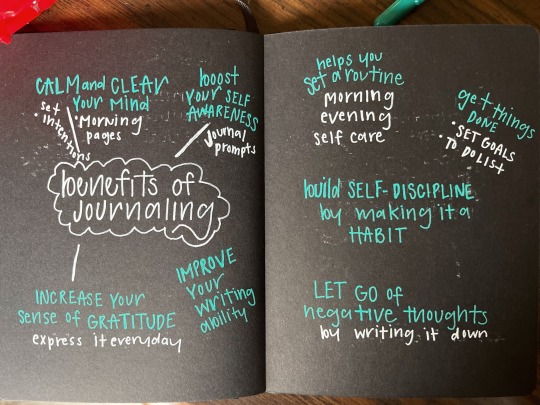 CALM and CLEAR
your MIND
• set
intentions
• Morning
pages
boost
YOUR SELF
AWARENESS
journal
prompts
benefits of
journaling
INCREASE YOUR
sense of GRATITUDE
express it everyday
IMPROVE
your
writing
ability
helps you
set a routine
morning
evening
self care
get things
DONE
• SET GOALS
• TO DO LIST
build SELF-DISCIPLINE
by making it a
HABIT
LET GO of
negative thoughts
by writing it down